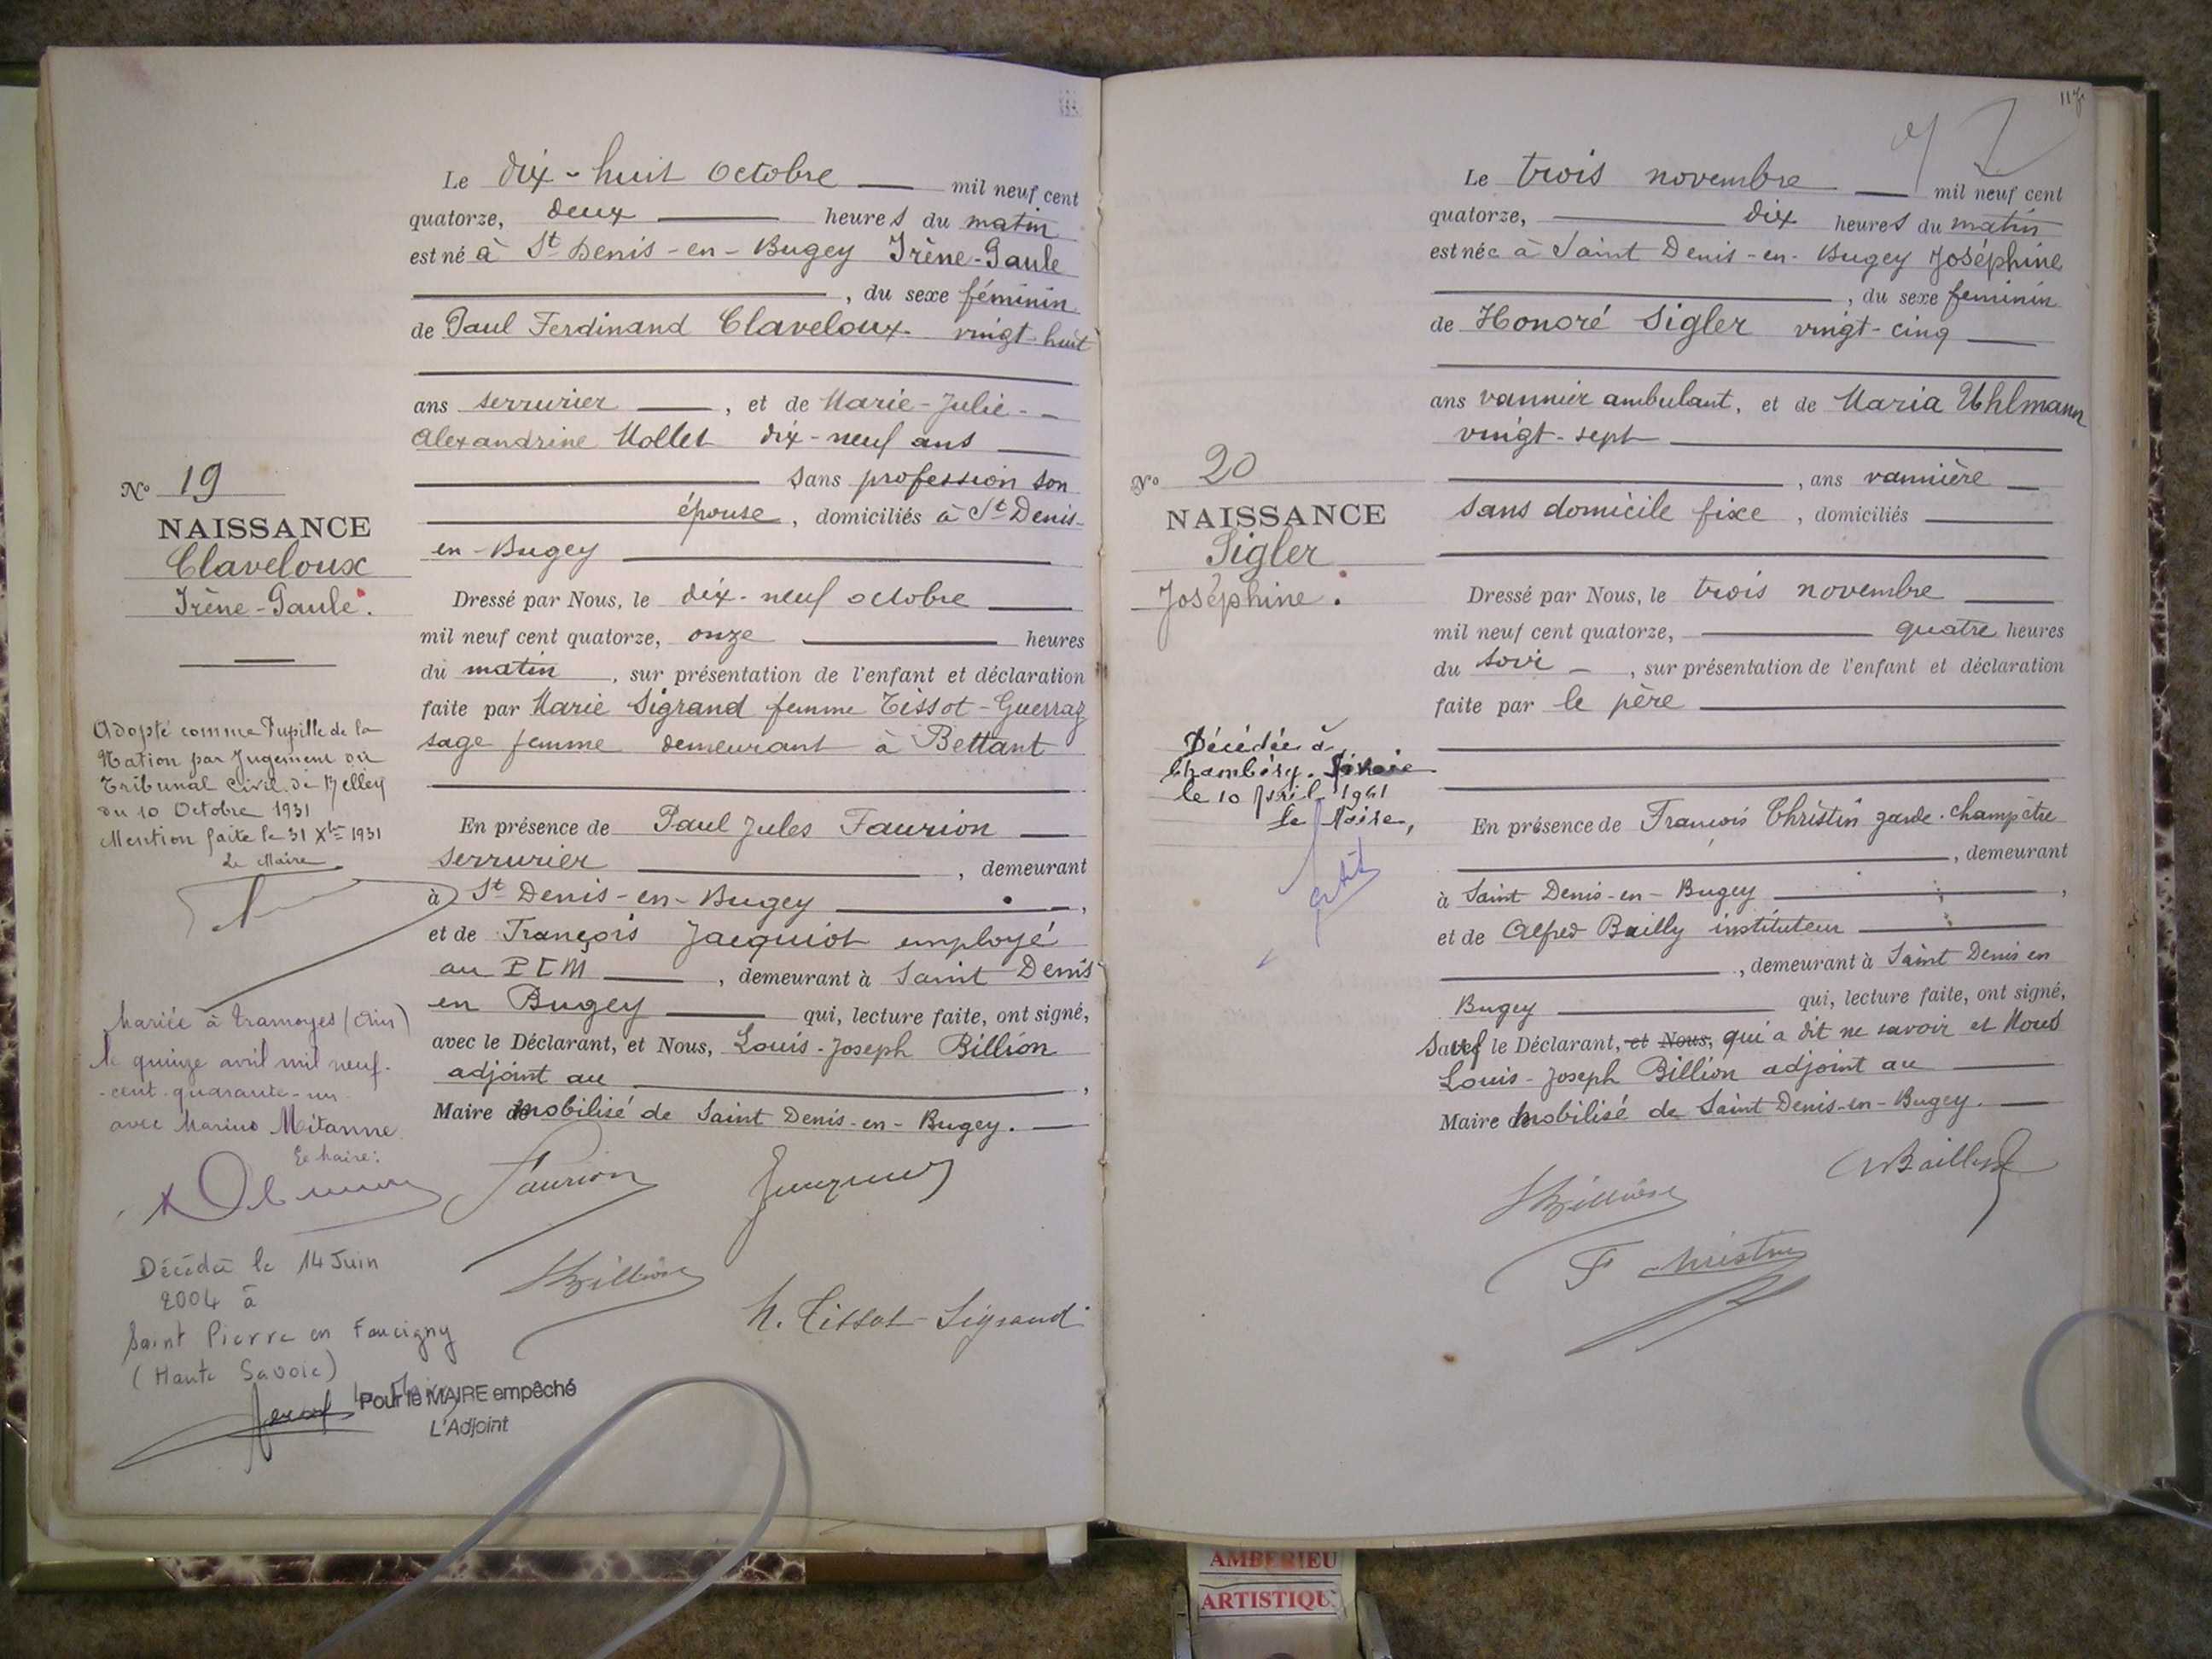 Le dix-huit Octobre mil neuf cent
quatorze, deux heures du matin
est né à St Denis-en-Bugey Irène-Paule
, du sexe féminin
de Paul Ferdinand Claveloux vingt-huit
ans serrurier, et de Marie-Julie-
Alexandrine Mollet dix-neuf ans
Sans profession son
épouse, domiciliés à St Denis-
en-Bugey
Dressé par Nous, le dix-neuf octobre
mil neuf cent quatorze, onze heures
du matin, sur présentation de l'enfant et déclaration
faite par Marie Sigrand femme Tissot-Guerraz
sage femme demeurant à Bettant
En présence de Paul Jules Faurion
serrurier, demeurant
à St Denis-en-Bugey,
et de François Jacquiot employé
au P L M, demeurant à Saint Denis
en Bugey qui, lecture faite, ont signé,
avec le Déclarant, et Nous, Louis-Joseph Billion
adjoint au,
Maire mobilisé de Saint Denis-en-Bugey.
Faurion
H. Tissot-Sigrand
No 19
NAISSANCE
Claveloux
Irène-Paule.
Adopté comme Pupille de la
Nation par Jugement du
Tribunal Civil de Belley
du 10 Octobre 1931
Mention faite le 31 Xbre 1931
Le Maire
Mariée à Tramoyes (Ain)
le quinze avril mil neuf-
-cent-quarante-un
avec Marius Mitanne
Le Maire:
Décédée le 14 Juin
2004 à
Saint Pierre en Faucigny
(Haute Savoie)
Pour le MAIRE empêché
L'Adjoint
Le trois novembre mil neuf cent
quatorze, dix heures du matin
est née à Saint Denis-en-Bugey Joséphine
, du sexe feminin
de Honoré Sigler vingt-cinq
ans vannier ambulant, et de Maria Uhlmann
vingt-sept
, ans vannière
sans domicile fixe, domiciliés
Dressé par Nous, le trois novembre
mil neuf cent quatorze, quatre heures
du soir, sur présentation de l'enfant et déclaration
faite par le père
En présence de François Christin garde-champêtre
, demeurant
à Saint Denis-en-Bugey,
et de Alfred Bailly instituteur
, demeurant à Saint Denis en
Bugey qui, lecture faite, ont signé,
Sauf le Déclarant, et Nous, qui a dit ne savoir et Nous
Louis-Joseph Billion adjoint au
Maire mobilisé de Saint Denis-en-Bugey.
No 20
NAISSANCE
Sigler
Joséphine.
Décédée à
Chambéry. Savoie
le 10 Avril 1961
Le Maire,
AMBERIEU
ARTISTIQU